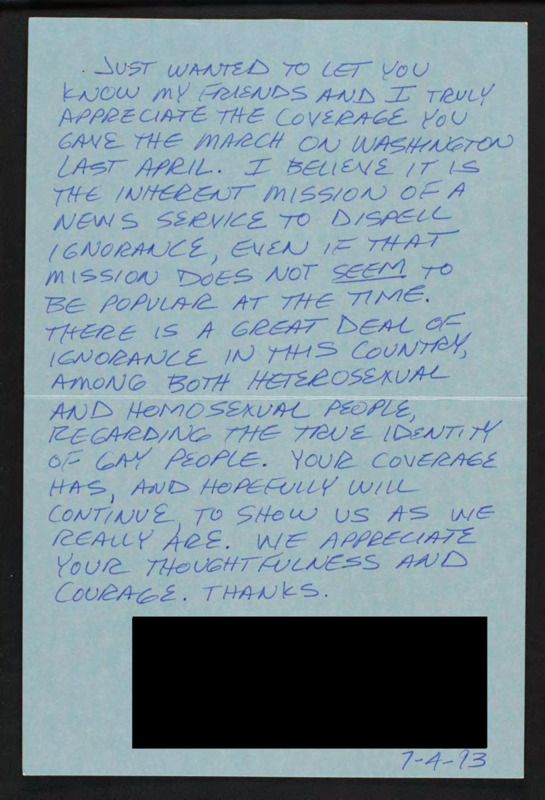 JUST WANTED TO LET YOU
KNOW MY FRIENDS AND I TRULY
APPRECIATE THE COVERAGE YOU
GAVE THE MARCH ON WASHINGTON
LAST APRIL. I BELIEVE IT IS
THE INHERENT MISSION OF A
NEWS SERVICE TO DISPELL
IGNORANCE, EVEN IF THAT
MISSION DOES NOT SEEM TO
BE POPULAR AT THE TIME.
THERE IS A GREAT DEAL OF
IGNORANCE IN THIS COUNTRY,
AMONG BOTH HETEROSEXUAL
AND HOMOSEXUAL PEOPLE,
REGARDING THE TRUE IDENTITY
OF GAY PEOPLE. YOUR COVERAGE
HAS, AND HOPEFULLY WILL
CONTINUE, TO SHOW US AS WE
REALLY ARE. WE APPRECIATE
YOUR THOUGHTFULNESS AND
COURAGE. THANKS.
7-4-93